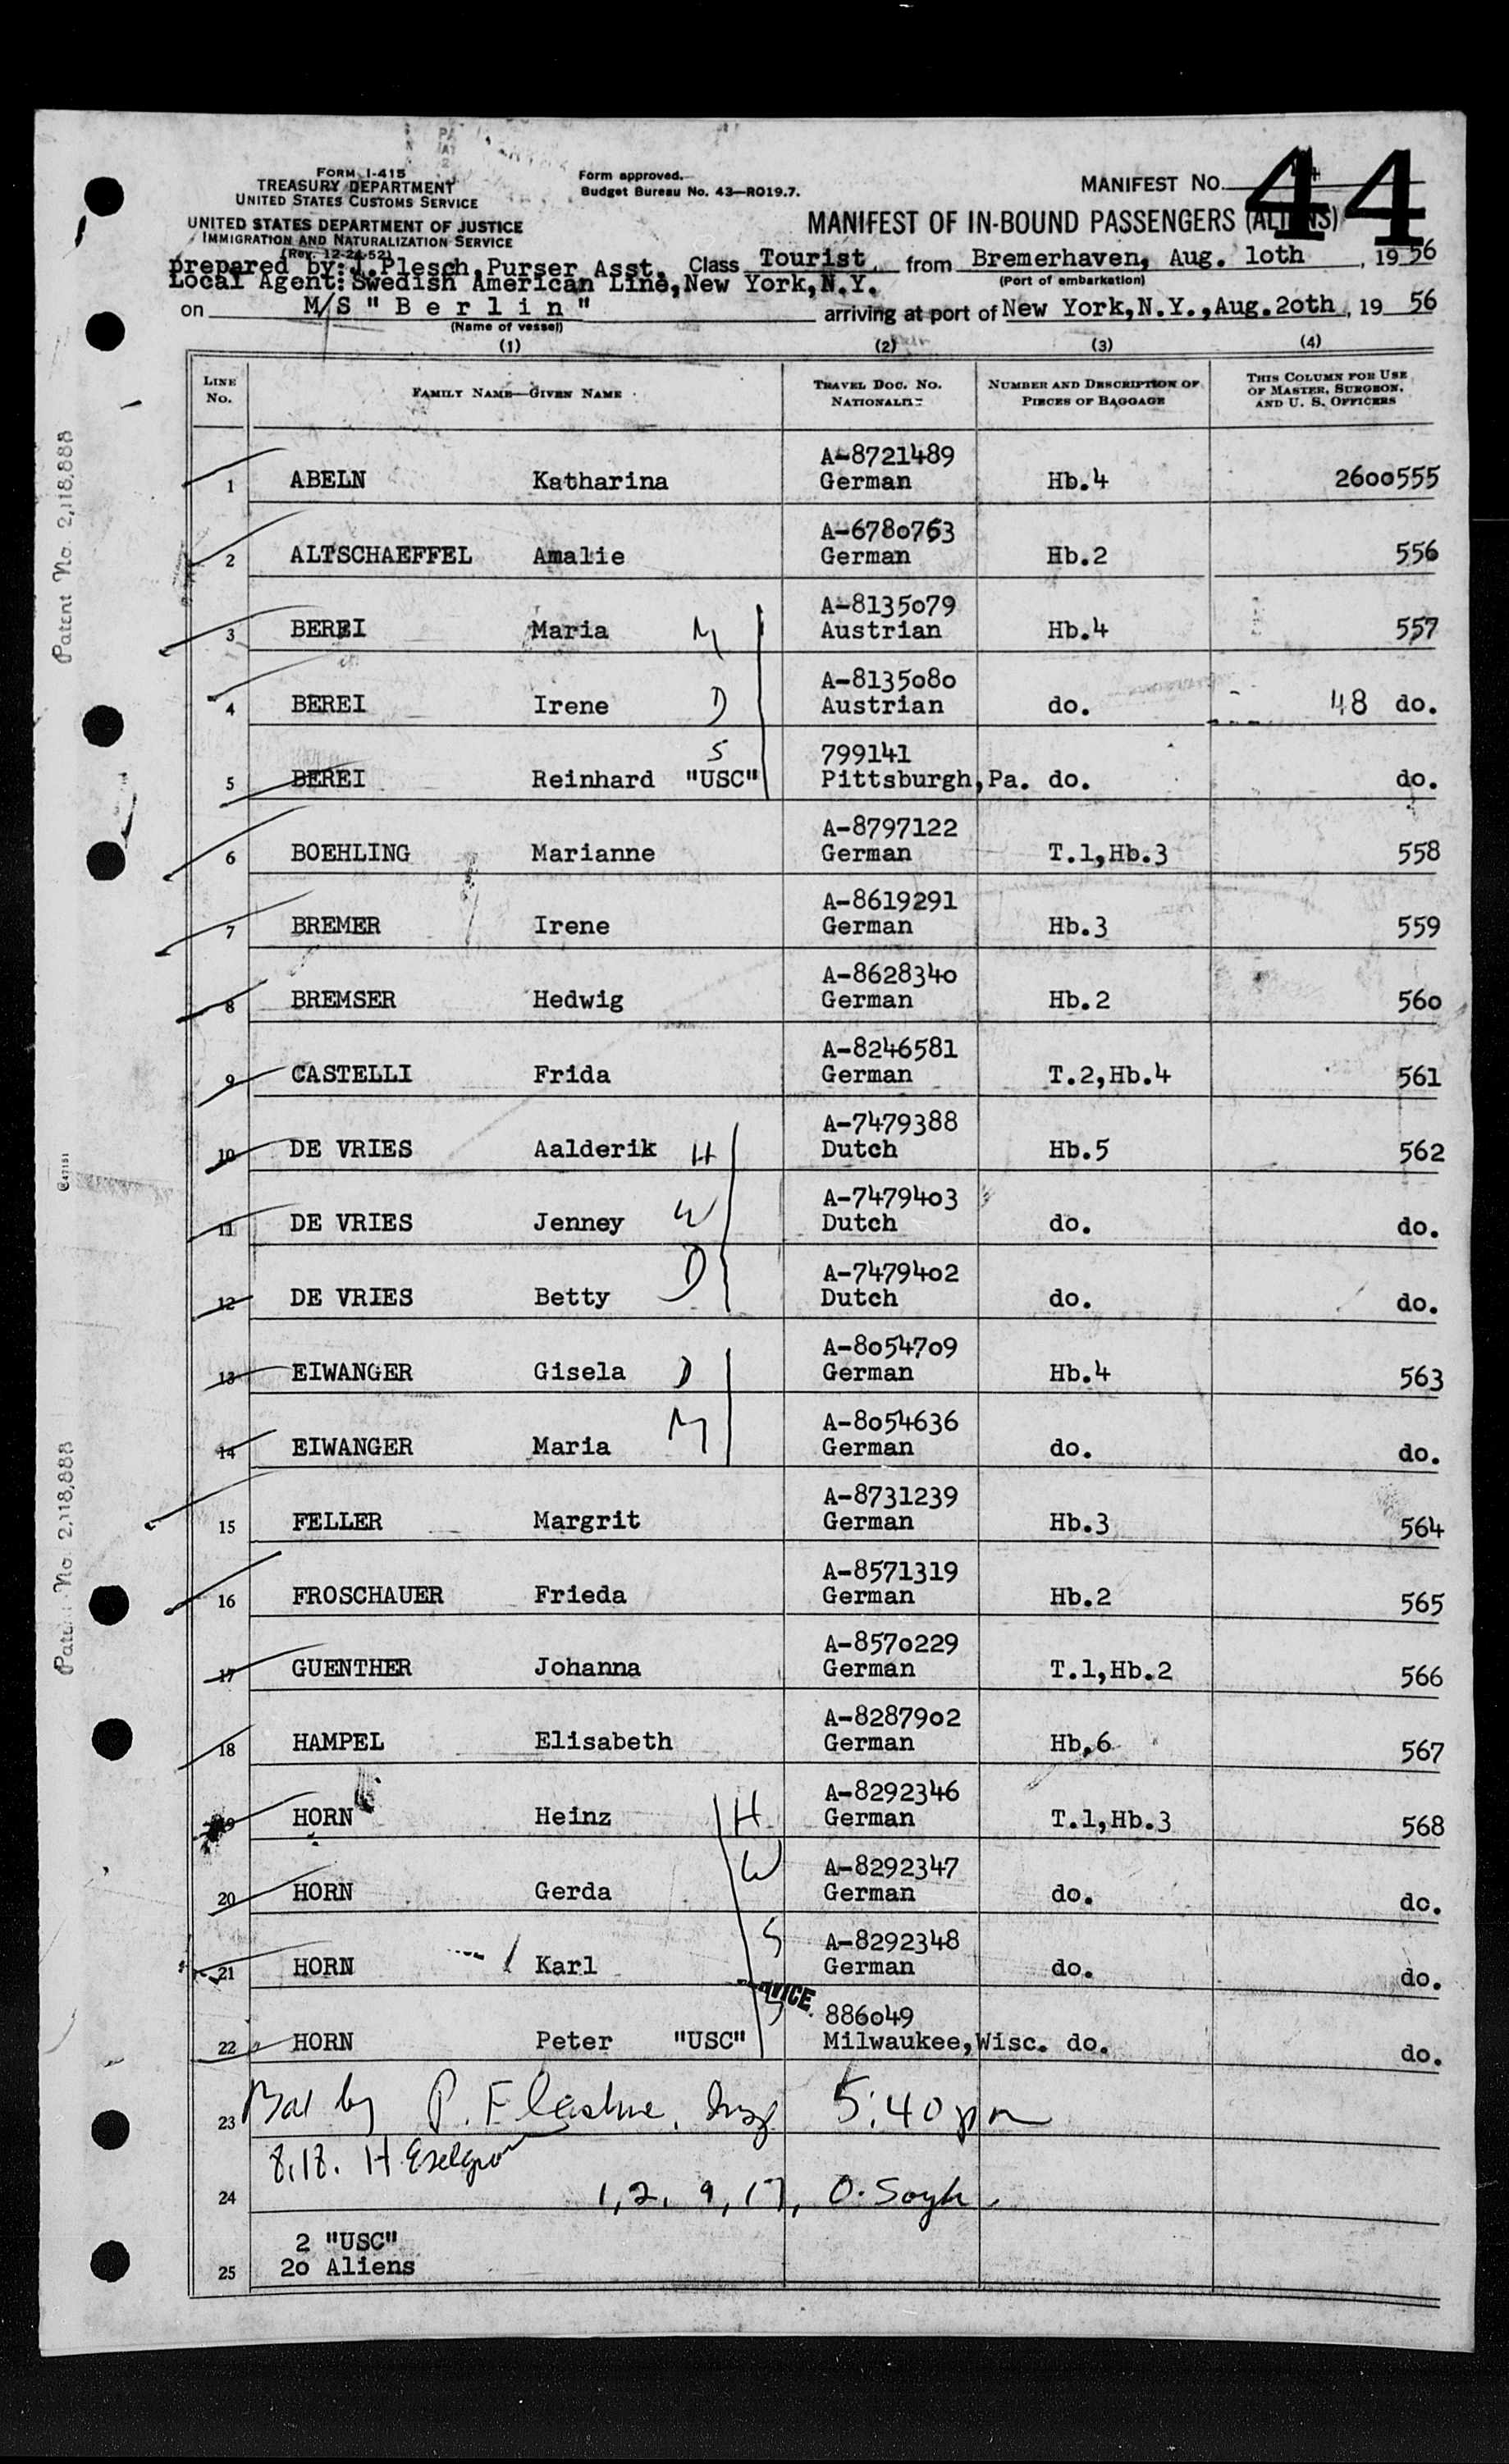 FORM I-415
TREASURY DEPARTMENT
UNITED STATES CUSTOMS SERVICE
UNITED STATES DEPARTMENT OF JUSTICE
IMMIGRATION AND NATURALIZATION SERVICE
(Rev. 12-24-52)
Form approved.
Budget Bureau No. 43—RO19.7.
MANIFEST NO. 44
MANIFEST OF IN-BOUND PASSENGERS (ALIENS)
prepared by: J.Plesch,Purser Asst. Class Tourist from Bremerhaven, Aug. 1oth, 1956
(Port of embarkation)
Local Agent:Swedish American Line,New York,N.Y.
on M/S "B e r l i n" arriving at port of New York,N.Y.,Aug.2oth, 19 56
(Name of vessel)
(1) (2) (3) (4)
LINE No. FAMILY NAME—GIVEN NAME TRAVEL DOC. NO. NATIONALITY NUMBER AND DESCRIPTION OF PIECES OF BAGGAGE THIS COLUMN FOR USE OF MASTER, SURGEON, AND U. S. OFFICERS
A-8721489
1 ABELN Katharina German Hb.4 26oo555
A-678o763
2 ALTSCHAEFFEL Amalie German Hb.2 556
A-8135o79
3 BEREI Maria M Austrian Hb.4 557
A-8135o8o
4 BEREI Irene D Austrian do. 48 do.
S 799141
5 BEREI Reinhard "USC" Pittsburgh,Pa. do. do.
A-8797122
6 BOEHLING Marianne German T.1,Hb.3 558
A-8619291
7 BREMER Irene German Hb.3 559
A-862834o
8 BREMSER Hedwig German Hb.2 56o
A-8246581
9 CASTELLI Frida German T.2,Hb.4 561
A-7479388
10 DE VRIES Aalderik H Dutch Hb.5 562
A-74794o3
11 DE VRIES Jenney W Dutch do. do.
A-74794o2
12 DE VRIES Betty D Dutch do. do.
A-8o547o9
13 EIWANGER Gisela D German Hb.4 563
A-8o54636
14 EIWANGER Maria M German do. do.
A-8731239
15 FELLER Margrit German Hb.3 564
A-8571319
16 FROSCHAUER Frieda German Hb.2 565
A-857o229
17 GUENTHER Johanna German T.1,Hb.2 566
A-82879o2
18 HAMPEL Elisabeth German Hb,6 567
A-8292346
19 HORN Heinz H German T.1,Hb.3 568
A-8292347
20 HORN Gerda W German do. do.
A-8292348
21 HORN Karl S German do. do.
886o49
22 HORN Peter "USC" S Milwaukee,Wisc. do. do.
23 Bal by P. 5:40 pm
8,18. H
24 1, 2, 9, 17, O.
2 "USC"
25 2o Aliens
Patent No. 2,118,888
Patent No. 2,118,888